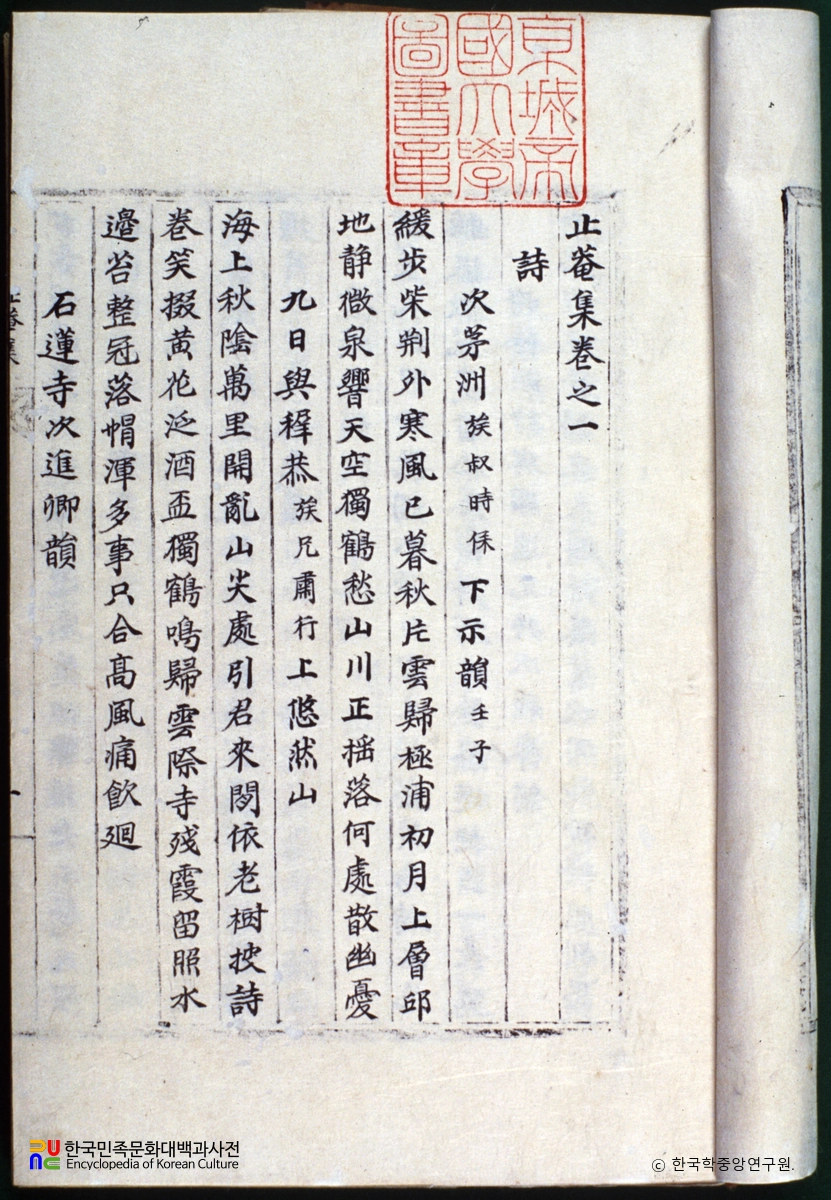 京城帝
國大學
圖書章
止菴集卷之一
詩
次茅洲族叔時保下示韻壬子
緩步柴荆外寒風已暮秋片雲歸極浦初月上層邱
地静微泉響天空獨鶴愁山川正揺落何處散幽憂
九日與穉恭族兄肅行上悠然山
海上秋陰萬里開亂山尖處引君來閒依老樹披詩
卷笑掇黄花泛酒盃獨鶴鳴歸雲際寺残霞留照水
邊苔整冠落帽渾多事只合髙風痛飮廻
石蓮寺次進卿韻
한국민족문화대백과사전
Encyclopedia of Korean Culture
© 한국학중앙연구원.